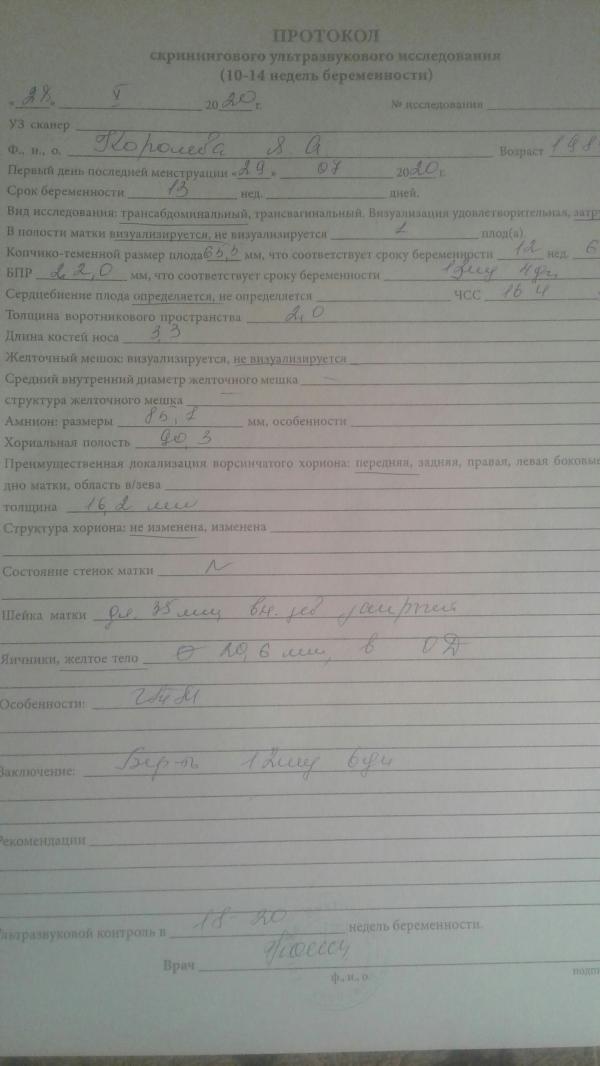 ПРОТОКОЛ
скринингового ультразвукового исследования
(10-14 недель беременности)
« 28 » V 2020 г. № исследования
УЗ сканер
Ф., и., о. Королева А. А Возраст 198
Первый день последней менструации « 29 » 07 2020 г.
Срок беременности 13 нед. дней.
Вид исследования: трансабдоминальный, трансвагинальный. Визуализация удовлетворительная, затру
В полости матки визуализируется, не визуализируется 1 плод(а).
Копчико-теменной размер плода 65,5 мм, что соответствует сроку беременности 12 нед. 6
БПР 22,0 мм, что соответствует сроку беременности 12нд 4дн
Сердцебиение плода определяется, не определяется ЧСС 164
Толщина воротникового пространства 2,0
Длина костей носа 3,3
Желточный мешок: визуализируется, не визуализируется
Средний внутренний диаметр желточного мешка –
структура желточного мешка —
Амнион: размеры 85,1 мм, особенности
Хориальная полость 90,3
Преимущественная локализация ворсинчатого хориона: передняя, задняя, правая, левая боковые
дно матки, область в/зева
толщина 16,2 мм
Структура хориона: не изменена, изменена
Состояние стенок матки N
Шейка матки дл. 35мм вн. зев закрыт
Яичники, желтое тело 20,6 мм, в
Особенности:
Заключение: Бер-ть 12нд 6дн
Рекомендации
Ультразвуковой контроль в 18-20 недель беременности.
Врач
ф., и., о. подпи